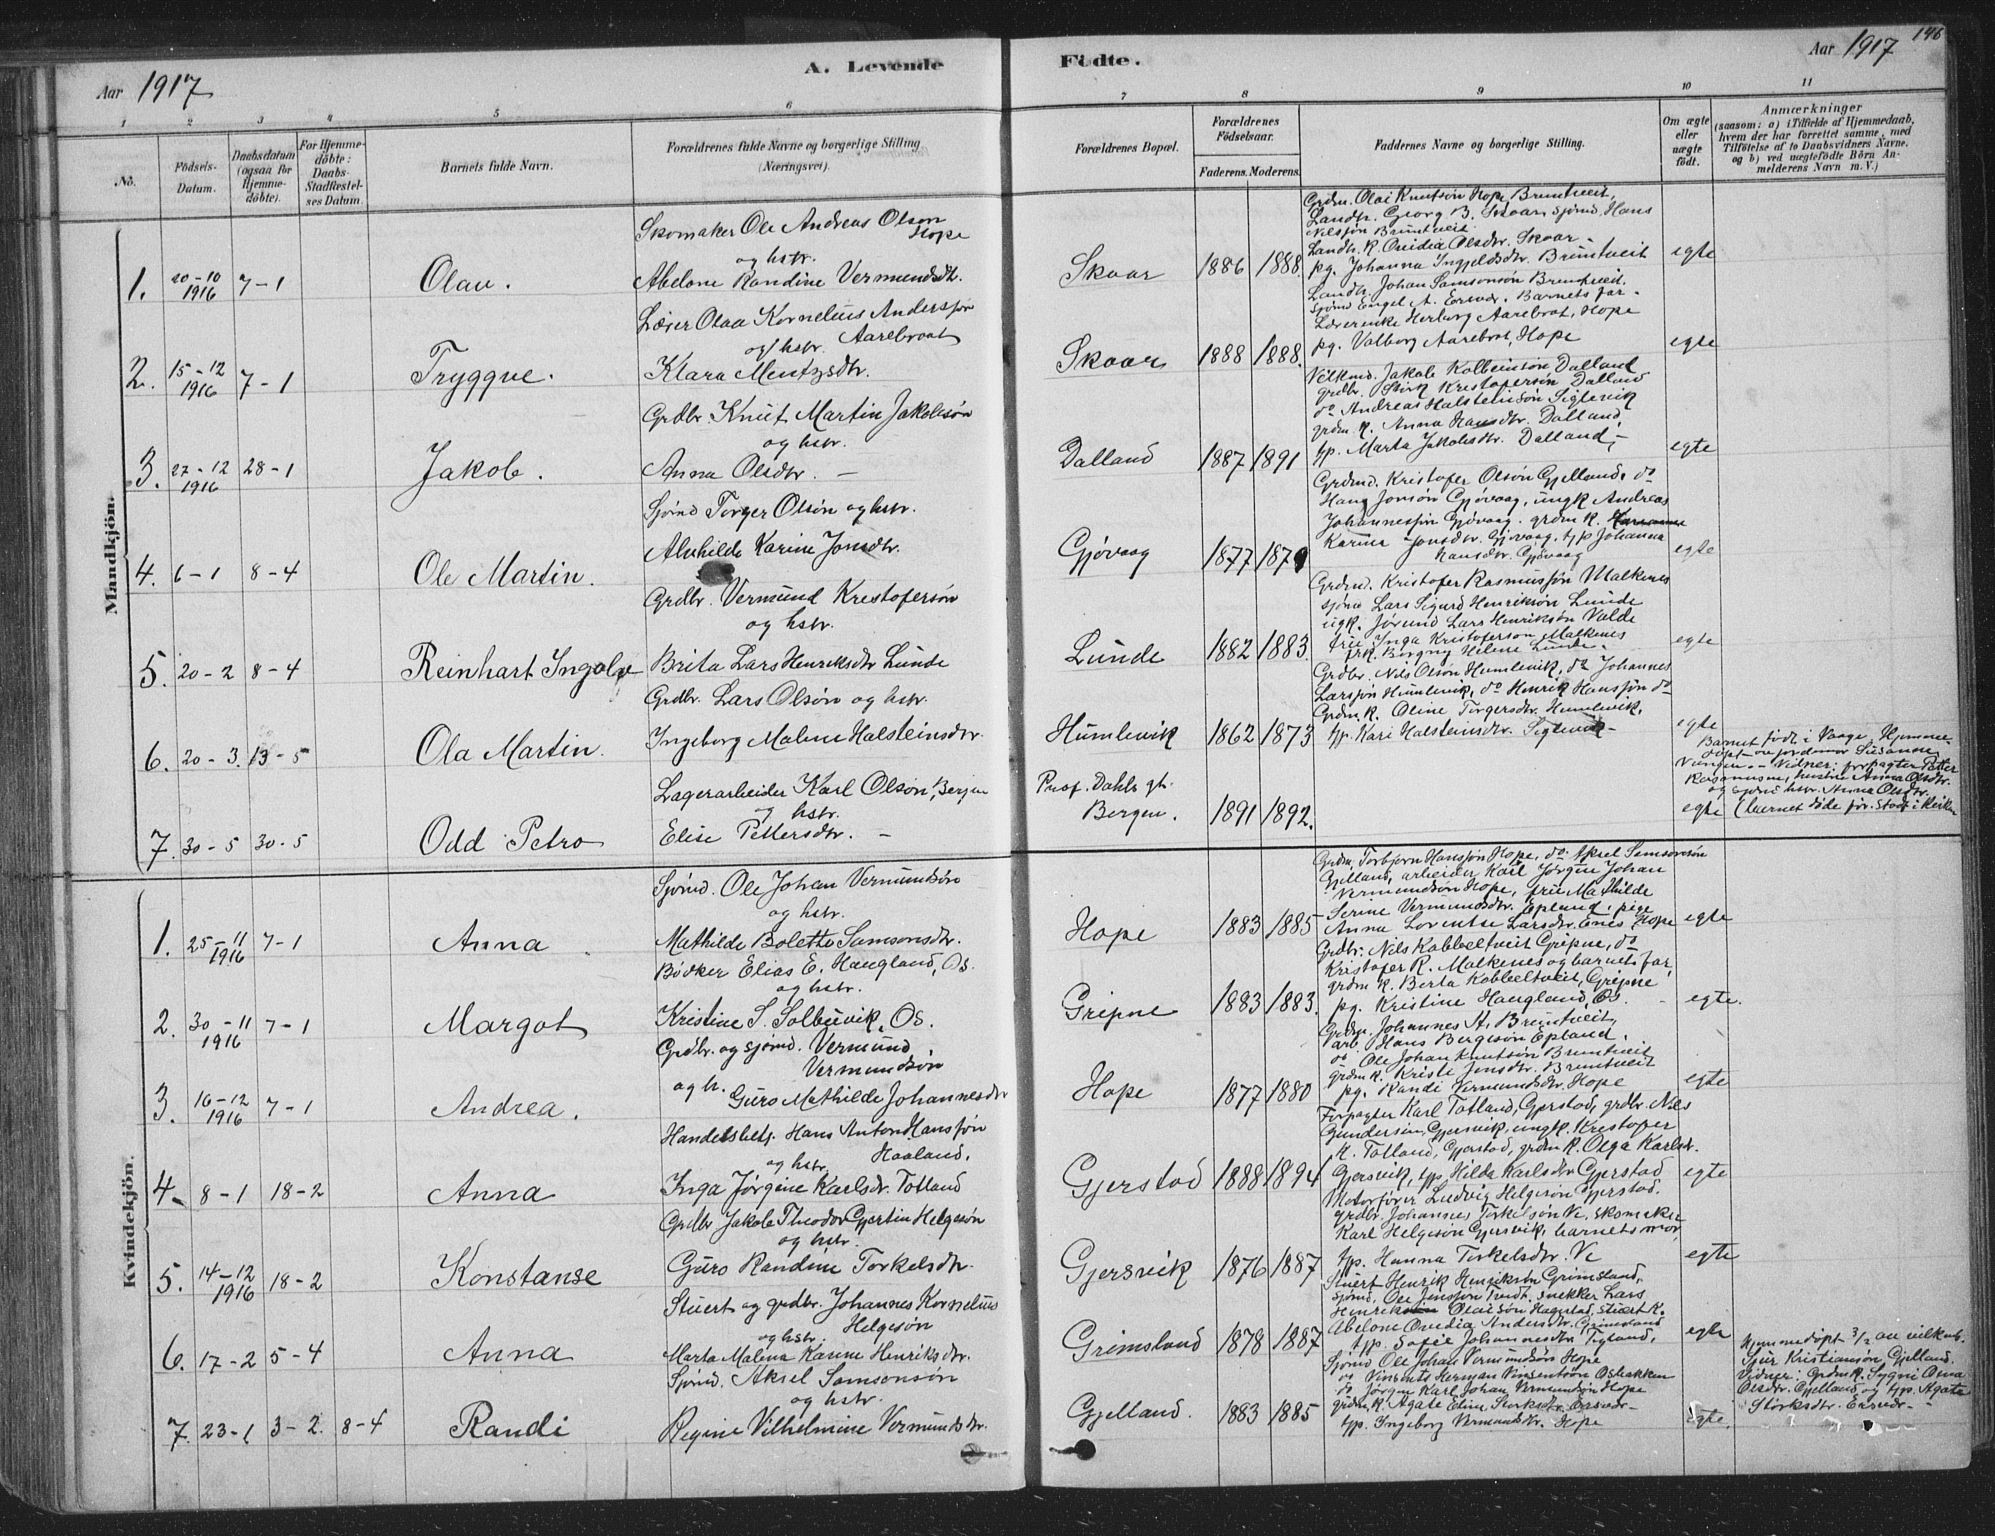 Aar 1917
A. Levende
Födte.
Aar 1917
146
1 2 3 4 5 6
7 8 9 10 11
No.
Födsels-
Datum.
Daabsdatum
(ogsaa for
Hjemme-
döbte).
For Hjemme-
döbte:
Daabs-
Stadfæstel-
ses Datum.
Barnets fulde Navn.
Forældrenes fulde Navne og borgerlige Stilling
(Næringsvei).
Forældrenes Bopæl.
Forældrenes
Födselsaar.
Faderens. Moderens.
Faddernes Navne og borgerlige Stilling.
Om ægte
eller
uægte
födt.
Anmærkninger
(saasom: a) i Tilfælde af Hjemmedaab,
hvem der har forrettet samme, med
Tilföielse af to Daabsvidners Navne.
og b) ved uægtefödte Börn An-
melderens Navn m. V.)
Mandkjön.
1. 20-10
1916
7-1
Olav.
Skomaker Ole Andreas Olson
Hope
og hstr.
Abelone Randine Vermundsdt.
Skaar
1886 1888.
Grdm. Olai Knutsön Hope, Bruntveit,
Landhr. Georg B. Skaar, sjömd. Hans
Nilsjön Bruntveit
Landh. K. Ovidia Olsdtr. Skaar -
pg. Johanna Ingjeldsdtr. Bruntveit
egte
2. 15-12
1916
7-1
Tryggve.
Lærer Olaa Kornelius Andersjön
Aarebroat
og hstr.
Klara Mentzsdtr.
Skaar
1888 1888.
Landhr. Johan Samsonsön Bruntveit,
Sjömd Engel A. Ersvær. Barnets far -
Lærerenke Herborg Aarebrot, Hope
pg. Valborg Aarebrot, Hope
egte
3. 27-12
1916
28-1
Jakob.
Grdbr. Knut Martin Jakobsön
og hstr.
Anna Olsdtr. -
Dalland
1887 1891
Vilkmd. Jakob Kolbeinsön Dalland
grdbr. Störk Kristofersön Dalland
do Andreas Halsteinsön Siglevik
grdm k. Anna Hansdtr. Dalland,
tp. Marta Jakobsdtr. Dalland, -
egte
4. 6-1
8-4
Ole Martin.
Sjömd Torger Olsön og hstr.
Alvhilde Karine Jonsdtr.
Gjövaag
1877
Grdmd. Kristofer Olsön Gjelland, do
Hans Jonsön Gjövaag, ungk Andreas
Johannesjön Gjövaag. grdm k.
Karina Jonsdtr. Gjövaag, tp Johanna
Hansdtr. Gjövaag
egte
5. 20-2
8-4
Reinhart Ingolv
Grdbr. Vermund Krestofersön
og hstr.
Brita Lars Henriksdtr Lunde
Lunde
1882 1883.
Grdmd. Kristofer Rasmusjön Malkenes
sjömd Lars Sigurd Henriksön Lunde
ugk. Jörund Lars Henriksön Valde
frue Inga Kristoferson Malkenes
frk. Borgny Helene Lunde. -
egte
6. 20-3.
13-5
Ola Martin.
Grdbr. Lars Olsön og hstr.
Ingeborg Malene Halsteinsdtr.
Humlevik
1862 1873
Grdbr. Nils Olsön Humlevik, do Johannes
Larsjön Humlevik, do Henrik Hansjön do
Grdm. k. Oline Torgersdtr. Humlevik,
tp. Kari Halsteinsdtr. Siglevik -
egte
7. 30-5
30-5
Odd Petro
Lagerarbeider Karl Olson, Bergen
og hstr.
Elise Pettersdtr. -
Prof. Dahls gt.
Bergen.
1891 1892.
egte
Barnet födt i Vaage, Hjemme-
döpt av jordemor Susanne
Vidner: forpagter Petter
Rasmusen, hustru Anna Olsdtr.
og hstr. Anna Olsdtr.
(barnet döde för Stadf. i kirken
Kvindekjön.
1. 25-11
1916
7-1
Anna
Sjömd. Ole Johan Vermundsön
og hstr.
Mathilde Bolette Samsonsdtr.
Hope
1883 1885
Grdm. Torbjorn Hansjön Hope, do. Aksel Samsonsön
Gjelland, arbeider Karl Jörgen Johan
Vermundsön Hope, frue Mathilde
Serine Vermundsdtr. Epland, pige
Anna Lorentse Larsdtr. Enes Hope
egte
2. 30-11
1916
7-1
Margot
Bödker Elias E. Haugland, Os.
og hstr.
Kristine S. Solbuvik, Os.
Gripne
1883 1883.
Grdbr. Nils Kobbeltveit Gripne, do
Kristofer R. Malkenes og barnets far,
grdm k. Berta Kobbeltveit, Gripne
pg. Kristine Haugland, Os.
egte.
3. 16-12
1916
7-1
Andrea.
Grdbr. og sjömd. Vermund
Vermundsön
og h. Guro Mathilde Johannesdtr
Hope
1877 1880
Grdm. Johannes A. Bruntveit,
arb. Hans Bergesön Epland.
do Ole Johan Knutsön Bruntveit
grdm k. Kristi Jonsdtr. Bruntveit
pg. Randi Vermundsdtr. Hope
egte
4. 8-1
18-2
Anna
Handelsbetj. Hans Anton Hansjön
Haaland.
og hstr.
Inga Jörgine Karlsdr. Totland
Gjerstad
1888 1894
Forpagter Karl Totland, Gjerstad, grdbr. Nils
Gundersen, Gjersvik, ungk. Krestofer
K. Totland, Gjerstad, grdm k. Olga Karlsdr.
Gjersvik, tp. Hilda Karlsdtr Gjerstad
egte
5. 14-12
1916
18-2
Konstanse
Grdbr Jakob Theodor Gjertin Helgesön
og hstr.
Guro Randine Torkelsdtr.
Gjersvik
1876 1887
Motorförer Ludvig Helgesön Gjerstad.
grdbr. Johannes Torkelsön Ve, skomaker
Karl Helgesön Gjersvik, barnets mor,
tp. Hanna Torkelsdtr. Ve
egte
6. 17-2
5-4
Anna
Stuert og grdbr. Johannes Kornelius
Helgesön
og hstr.
Marta Malena Karine Henriksdtr.
Grimsland
1878 1887
Stuert Henrik Henriksön Grimsland,
sjömd. Ole Jensjön Tveit, snekker Lars
Olai sön Hagestad, stuert k.
Abelone Ovedia Andersdtr. Grimsland
tp. Sofie Johannesdtr Tigland,
egte
7. 23-1
3-2.
8-4
Randi
Sjömd. Aksel Samsonsön
og hstr.
Regine Vilhelmine Vermundsdtr.
Gjelland.
1883 1885
Sjömd Ole Johan Vermundsön Hope
do Vinsents Herman Vinsentsön Osbakken
do. Jörgen Karl Johan Vermundsön Hope
grdm. k. Agate Eline Störksdtr. Ersvær -
tp. Ingeborg Vermundsdtr. Hope
egte.
Hjemmedöpt 3/2 av vilkmd.
Sjur Kristiansön, Gjelland.
Vidner: Grdm k. Sygni Oma
Olsdtr. Gjelland og tp. Agate
Störksdtr. Ersvær. -